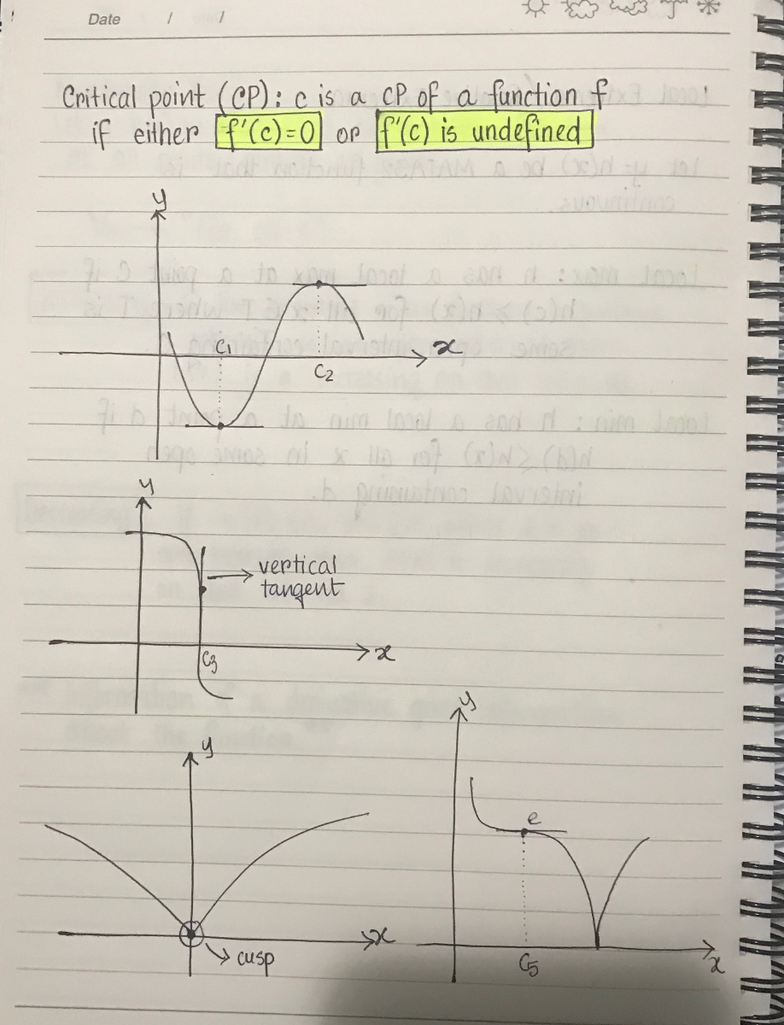 Date / /
Critical point (CP): c is a CP of a function f
if either f'(c)=0 or f'(c) is undefined
y
x
C1
C2
y
vertical
tangent
x
C3
y
x
cusp
y
e
x
C5